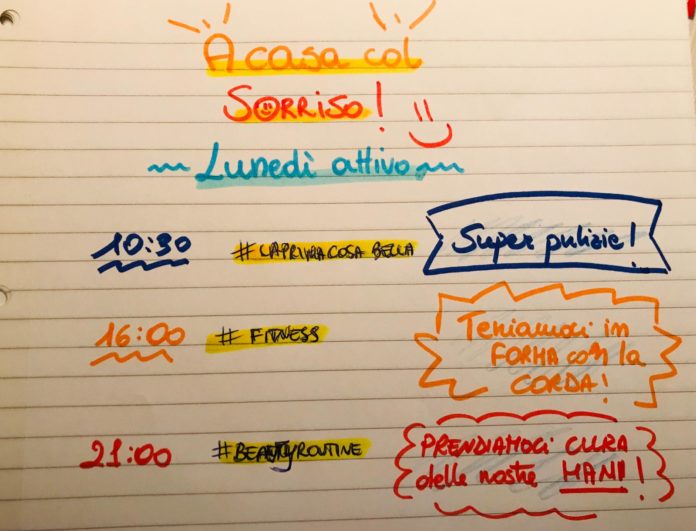 A casa col
SORRISO!
Lunedì attivo
10:30 #LAPRIMACOSA BELLA Super pulizie!
16:00 # FITNESS Teniamoci in
FORMA con la
CORDA!
21:00 #BEAUTYROUTINE PRENDIAMOCI CURA
delle nostre MANI!